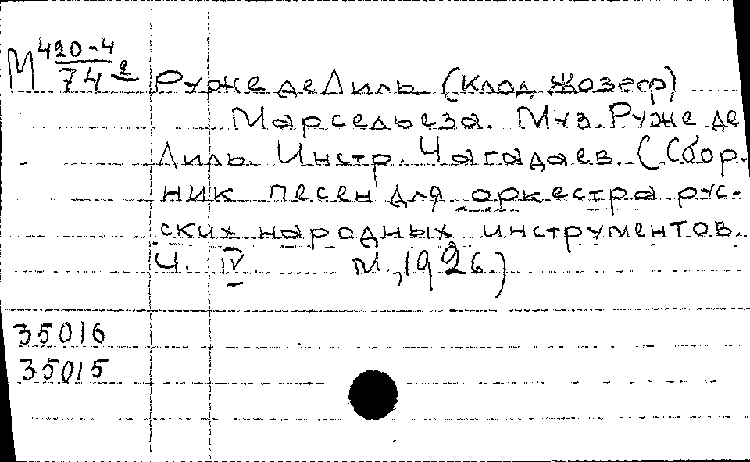 М 420-4
74 2
Руже де Лиль (Клод Жозеф)
Марсельеза. Муз. Руже де
Лиль. Инстр. Чагадаев. (Сбор-
ник песен для оркестра рус-
ских народных инструментов.
Ч. IV М., 1926.)
35016
35015